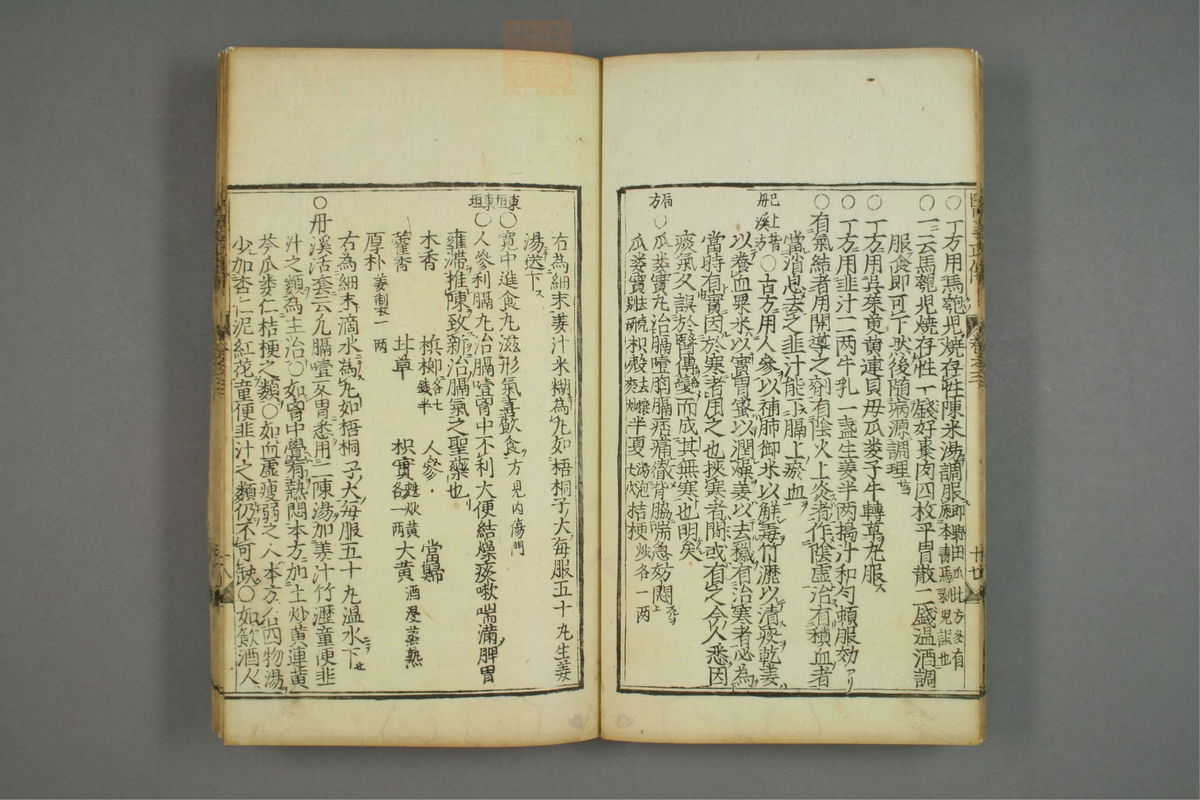 〇丁方用馬匏兒燒存性陳米湯調服即野田瓜北方多有
〇一云馬匏兒燒存性一錢好棗肉四枚平胃散二盛温酒調
服食即可下然後隨病源調理
〇丁方用吳茱萸黄連貝毋瓜蔞子牛轉草丸服
〇丁方用韭汁二两牛乳一盞生姜半两搗汁和匀頓服効
〇有氣結者用開導之劑有陰火上炎者作陰虚治有積血者
當消息去之韭汁能下膈上瘀血
已上皆丹溪方
〇古方用人參以補肺御米以觧毒竹瀝以清痰乾姜
以養血粟米以實胃蜜以潤燥姜以去穢有治寒者必為
當時有實因於寒者用之也挾寒者間或有之今人悉因
痰氣久誤於醫傳變而成其無寒也明矣
局方
〇瓜蔞實丸治膈噎胸膈痞痛徹背脇喘急妨悶
瓜蔞實 枳殻 半夏 桔梗炒各一两
右為細末姜汁米糊為丸如梧桐子大每服五十丸生姜
湯送下
東垣
〇寛中進食丸滋形氣喜飲食方見内傷門
東垣
〇人參利膈丸治膈噎胷中不利大便結燥痰嗽喘滿脾胃
壅滯推陳致新治膈氣之聖藥也
木香 檳榔各七錢半 人參 當歸
藿香 甘草 枳實麩炒黄各一两 大黄酒浸蒸熟
厚朴姜制一两
右為細末滴水為丸如梧桐子大每服五十丸温水下
〇丹溪活套云凡膈噎反胃悉用二陳湯加姜汁竹瀝童便韭
汁之類為主治〇如胷中覺有熱悶本方加土炒黄連黄
芩瓜蔞仁桔梗之類〇如血虚瘦弱之人本方合四物湯
少加杏仁泥紅花童便韭汁之類仍不可缺〇如飲酒人